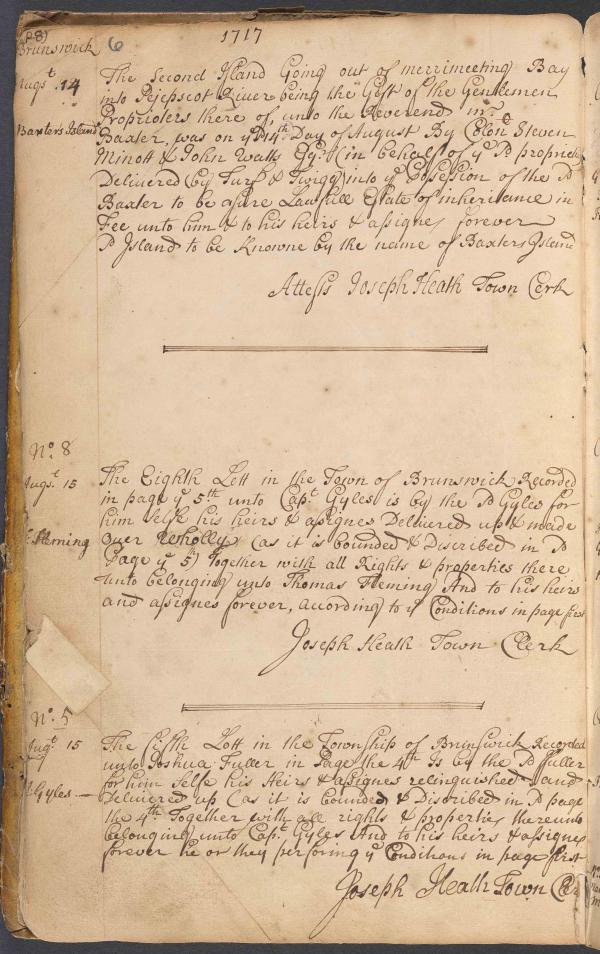 (P8)
Brunswick 6 1717
Augst. 14
The Second Island Going out of merrimeeting Bay
into Pejepscot River being the Gift of the Gentlemen
Proprioters there of, unto the Reverend mr. 
Baxters Island
Baxter, was on ye 14th Day of August By Colon Steven
Minott & John Watts Esqrs (in behalf of ye sd propriet
Delivered (by Turf & Twigg) into ye Possesion of the sd
Baxter to be a sure Lawfull Estate of inheritance in
Fee unto him & to his heirs & assignes forever
sd Island to be Knowne by the name of Baxters Island
Attests Joseph Heath Town Clerk
No. 8
Augst. 15
The Eighth Lott in the Town of Brunswick Recorded
in page ye 5th unto Capt. Gyles is by the sd Gyles for
him selfe his heirs & assignes Delivered up & made
Fleming
over Wholly (as it is bounded & Discribed in sd
Page ye 5) Together with all Rights & properties there
unto belonging unto Thomas Fleming And to his heirs
and assignes forever, according to ye Conditions in page first
Joseph Heath Town Clerk
No. 5
Augt 15
The fifth Lott in the Township of Brunswick Recorded
unto Joshua Fuller in Page the 4th Is by the sd fuller
for him selfe his Heirs & assignes relinquished and
Gyles
Delivered up (as it is bounded & Discribed in sd page
the 4th Together with all rights & properties thereunto
belonging unto Capt. Gyles And to his heirs & assignes
forever he or they performing ye Conditions in page first
Joseph Heath Town Cler